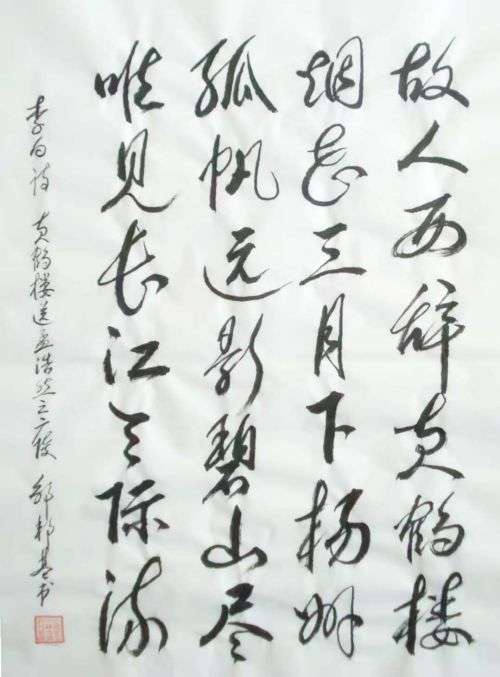 故人西辞黄鹤楼
烟花三月下扬州
孤帆远影碧山尽
唯见长江天际流
李白诗 黄鹤楼送孟浩然之广陵 书